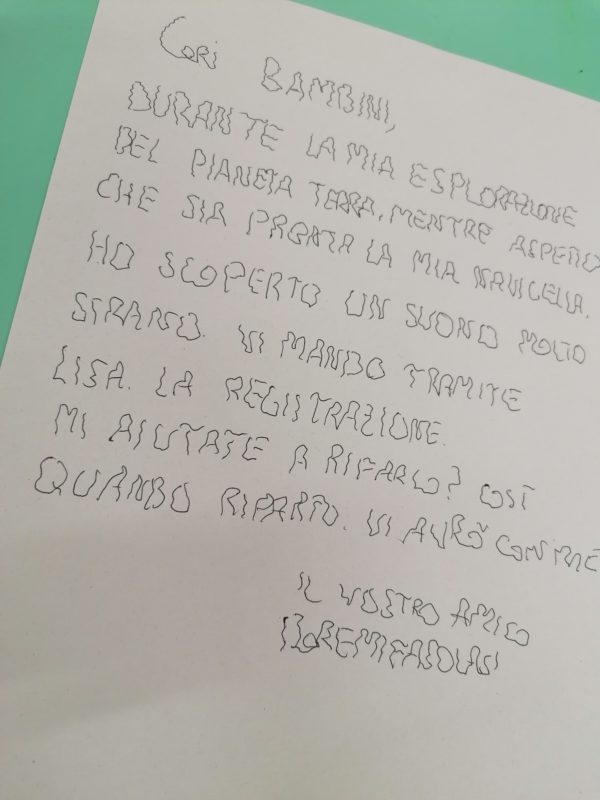 Cari BAMBINI,
DURANTE LA MIA ESPLORAZIONE
DEL PIANETA TERRA, MENTRE ASPETTO
CHE SIA PRONTA LA MIA NAVICELLA.
HO SCOPERTO UN SUONO MOLTO
STRANO. VI MANDO TRAMITE
LISA. LA REGISTRAZIONE.
MI AIUTATE A RIFARLO? COSÌ
QUANDO RIPARTO. VI AVRÒ CON ME
IL VOSTRO AMICO